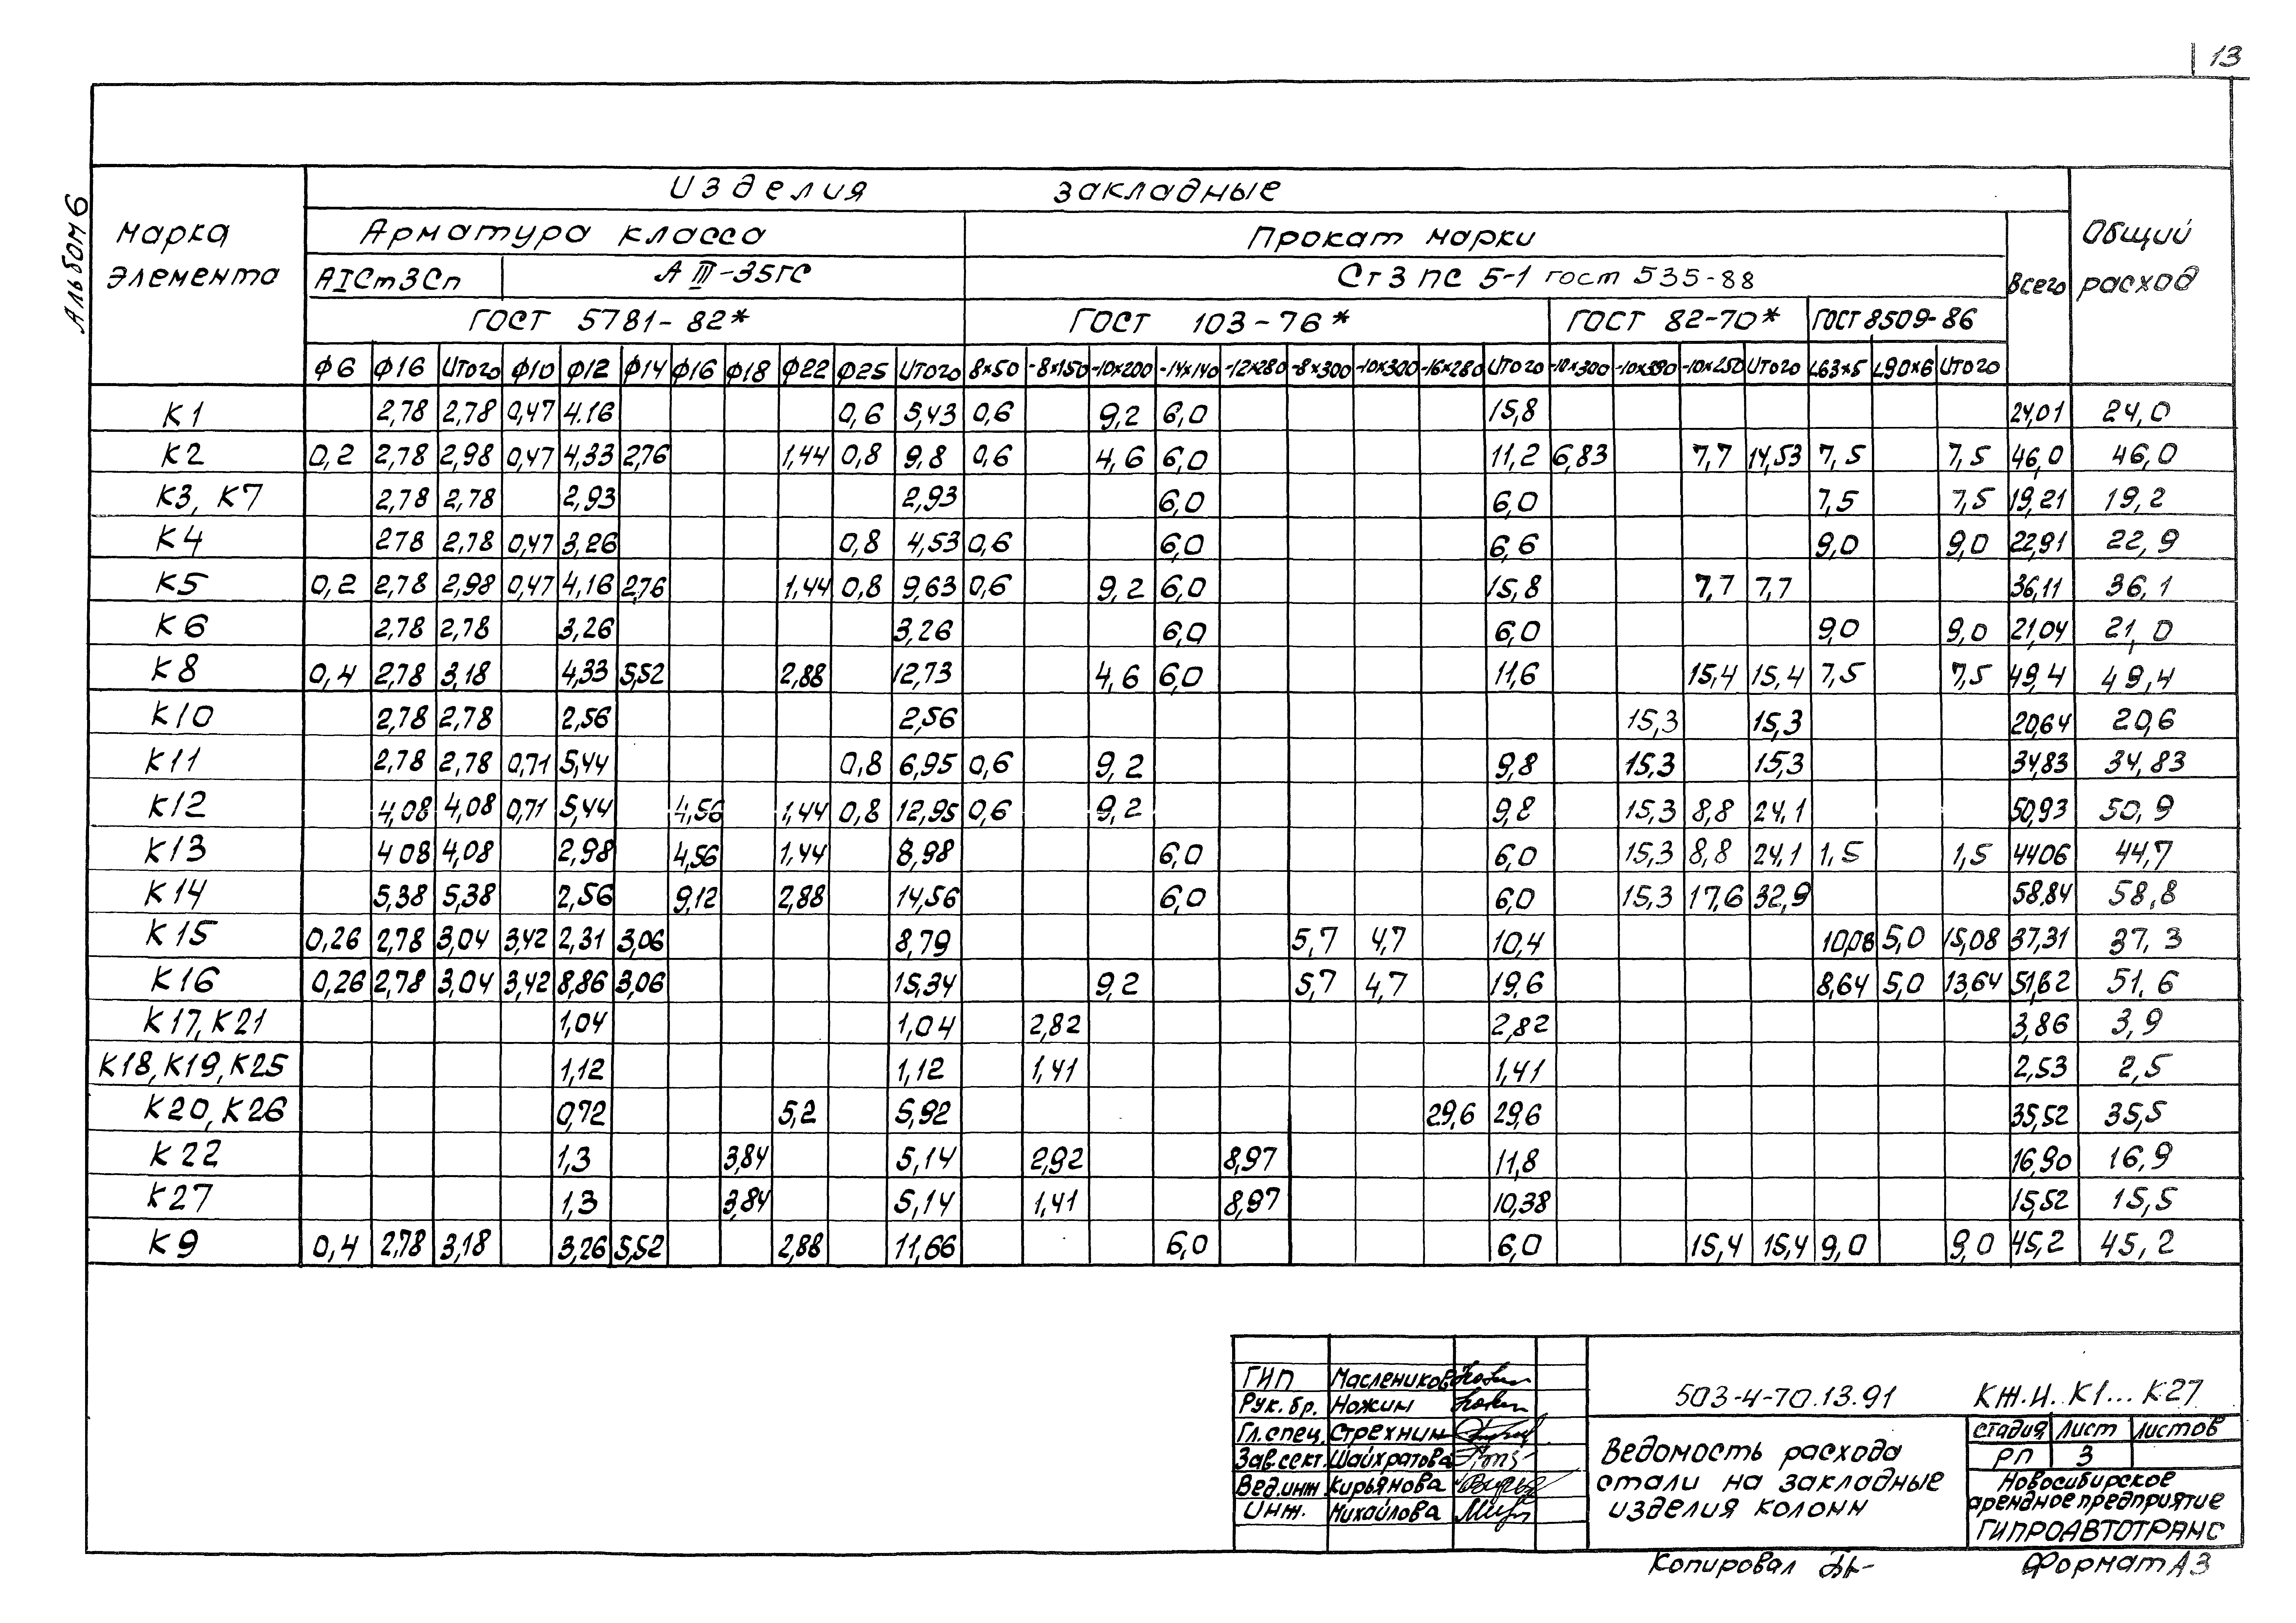 13
Альбом 6
Марка элемента
Изделия закладные
Общий расход
Арматура класса
Прокат марки
Всего
АIСт3Сп
АIII-35ГС
Ст3 пс 5-1 гост 535-88
ГОСТ 5781-82*
ГОСТ 103-76*
ГОСТ 82-70*
ГОСТ 8509-86
Ф6 Ф16 Итого Ф10 Ф12 Ф14 Ф16 Ф18 Ф22 Ф25 Итого 8×50 -8×150 -10×200 -14×140 -12×280 -8×300 -10×300 -16×280 Итого -10×300 -10×390 -10×250 Итого L63×5 L90×6 Итого
К1 2,78 2,78 0,47 4.16 0,6 5,43 0,6 9,2 6,0 15,8 24,01 24,0
К2 0,2 2,78 2,98 0,47 4,33 2,76 1,44 0,8 9,8 0,6 4,6 6,0 11,2 6,83 7,7 14,53 7,5 7,5 46,0 46,0
К3, К7 2,78 2,78 2,93 2,93 6,0 6,0 7,5 7,5 19,21 19,2
К4 278 2,78 0,47 3,26 0,8 4,53 0,6 6,0 6,6 9,0 9,0 22,91 22,9
К5 0,2 2,78 2,98 0,47 4,16 2,76 1,44 0,8 9,63 0,6 9,2 6,0 15,8 7,7 7,7 36,11 36,1
К6 2,78 2,78 3,26 3,26 6,0 6,0 9,0 9,0 21,04 21,0
К8 0,4 2,78 3,18 4,33 5,52 2,88 12,73 4,6 6,0 11,6 15,4 15,4 7,5 7,5 49,4 49,4
К10 2,78 2,78 2,56 2,56 15,3 15,3 20,64 20,6
К11 2,78 2,78 0,71 5,44 0,8 6,95 0,6 9,2 9,8 15,3 15,3 34,83 34,83
К12 4,08 4,08 0,71 5,44 4,56 1,44 0,8 12,95 0,6 9,2 9,8 15,3 8,8 24,1 50,93 50,9
К13 4 08 4,08 2,98 4,56 1,44 8,98 6,0 6,0 15,3 8,8 24,1 1,5 1,5 4406 44,7
К14 5,38 5,38 2,56 9,12 2,88 14,56 6,0 6,0 15,3 17,6 32,9 58,84 58,8
К15 0,26 2,78 3,04 3,42 2,31 3,06 8,79 5,7 4,7 10,4 10,08 5,0 15,08 37,31 37,3
К16 0,26 2,78 3,04 3,42 8,86 3,06 15,34 9,2 5,7 4,7 19,6 8,64 5,0 13,64 51,62 51,6
К17, К21 1,04 1,04 2,82 2,82 3,86 3,9
К18, К19, К25 1,12 1,12 1,41 1,41 2,53 2,5
К20, К26 0,72 5,2 5,92 29,6 29,6 35,52 35,5
К22 1,3 3,84 5,14 2,92 8,97 11,8 16,90 16,9
К27 1,3 3,84 5,14 1,41 8,97 10,38 15,52 15,5
К9 0,4 2,78 3,18 3,26 5,52 2,88 11,66 6,0 6,0 15,4 15,4 9,0 9,0 45,2 45,2
ГИП Маслеников
Рук. бр. Ножин
Гл. спец. Стрехнин
Зав. сект. Шайхратова
Вед. инж. Кирьянова
Инж. Михайлова
503-4-70.13.91 КЖ.И. К1... К27
Ведомость расхода
стали на закладные
изделия колонн
Стадия Лист Листов
РП 3
Новосибирское
арендное предприятие
ГИПРОАВТОТРАНС
Копировал
Формат А3